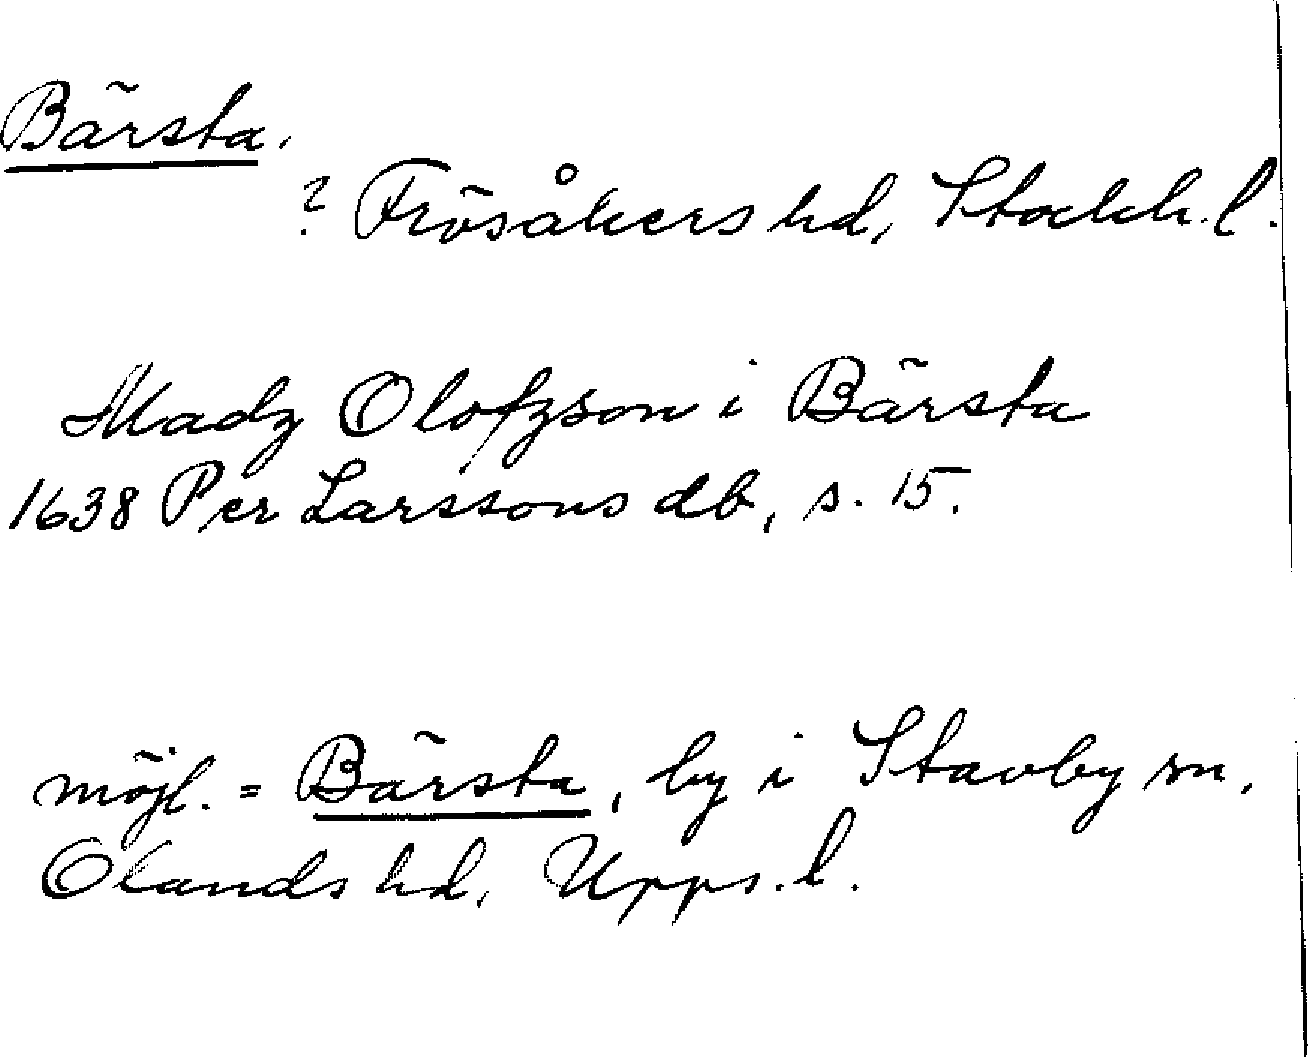 Bärsta.
? Frösåkers hd, Stockh. l.
Madz Olofzson i Bärsta
1638 Per Larssons db, s. 15.
möjl. = Bärsta, by i Stavby sn,
Olands hd, Upps. l.